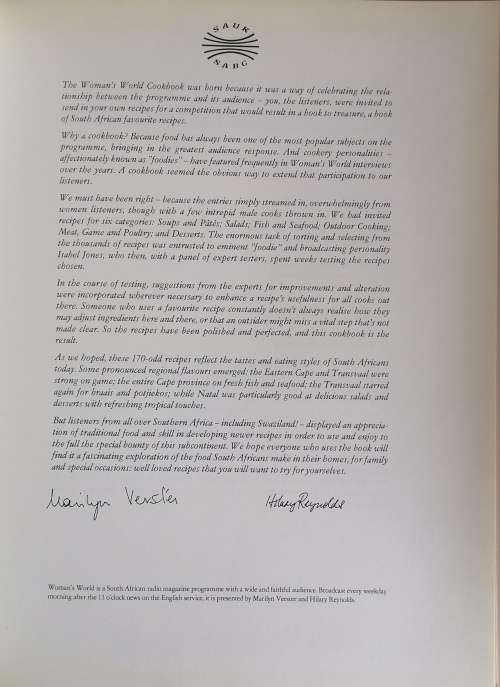 SAUK
NABC
The Woman's World Cookbook was born because it was a way of celebrating the rela-
tionship between the programme and its audience – you, the listeners, were invited to
send in your own recipes for a competition that would result in a book to treasure, a book
of South African favourite recipes.
Why a cookbook? Because food has always been one of the most popular subjects on the
programme, bringing in the greatest audience response. And cookery personalities –
affectionately known as "foodies" – have featured frequently in Woman's World interviews
over the years. A cookbook seemed the obvious way to extend that participation to our
listeners.
We must have been right – because the entries simply streamed in, overwhelmingly from
women listeners, though with a few intrepid male cooks thrown in. We had invited
recipes for six categories: Soups and Pâtés; Salads; Fish and Seafood; Outdoor Cooking;
Meat, Game and Poultry; and Desserts. The enormous task of sorting and selecting from
the thousands of recipes was entrusted to eminent "foodie" and broadcasting personality
Isabel Jones, who then, with a panel of expert testers, spent weeks testing the recipes
chosen.
In the course of testing, suggestions from the experts for improvements and alteration
were incorporated wherever necessary to enhance a recipe's usefulness for all cooks out
there. Someone who uses a favourite recipe constantly doesn't always realise how they
may adjust ingredients here and there, or that an outsider might miss a vital step that's not
made clear. So the recipes have been polished and perfected, and this cookbook is the
result.
As we hoped, these 170-odd recipes reflect the tastes and eating styles of South Africans
today. Some pronounced regional flavours emerged: the Eastern Cape and Transvaal were
strong on game; the entire Cape province on fresh fish and seafood; the Transvaal starred
again for braais and potjiekos; while Natal was particularly good at delicious salads and
desserts with refreshing tropical touches.
But listeners from all over Southern Africa – including Swaziland! – displayed an apprecia-
tion of traditional food and skill in developing newer recipes in order to use and enjoy to
the full the special bounty of this subcontinent. We hope everyone who uses the book will
find it a fascinating exploration of the food South Africans make in their homes, for family
and special occasions: well loved recipes that you will want to try for yourselves.
Marilyn Verster Hilary Reynolds
Woman's World is a South African radio magazine programme with a wide and faithful audience. Broadcast every weekday
morning after the 11 o'clock news on the English service, it is presented by Marilyn Verster and Hilary Reynolds.